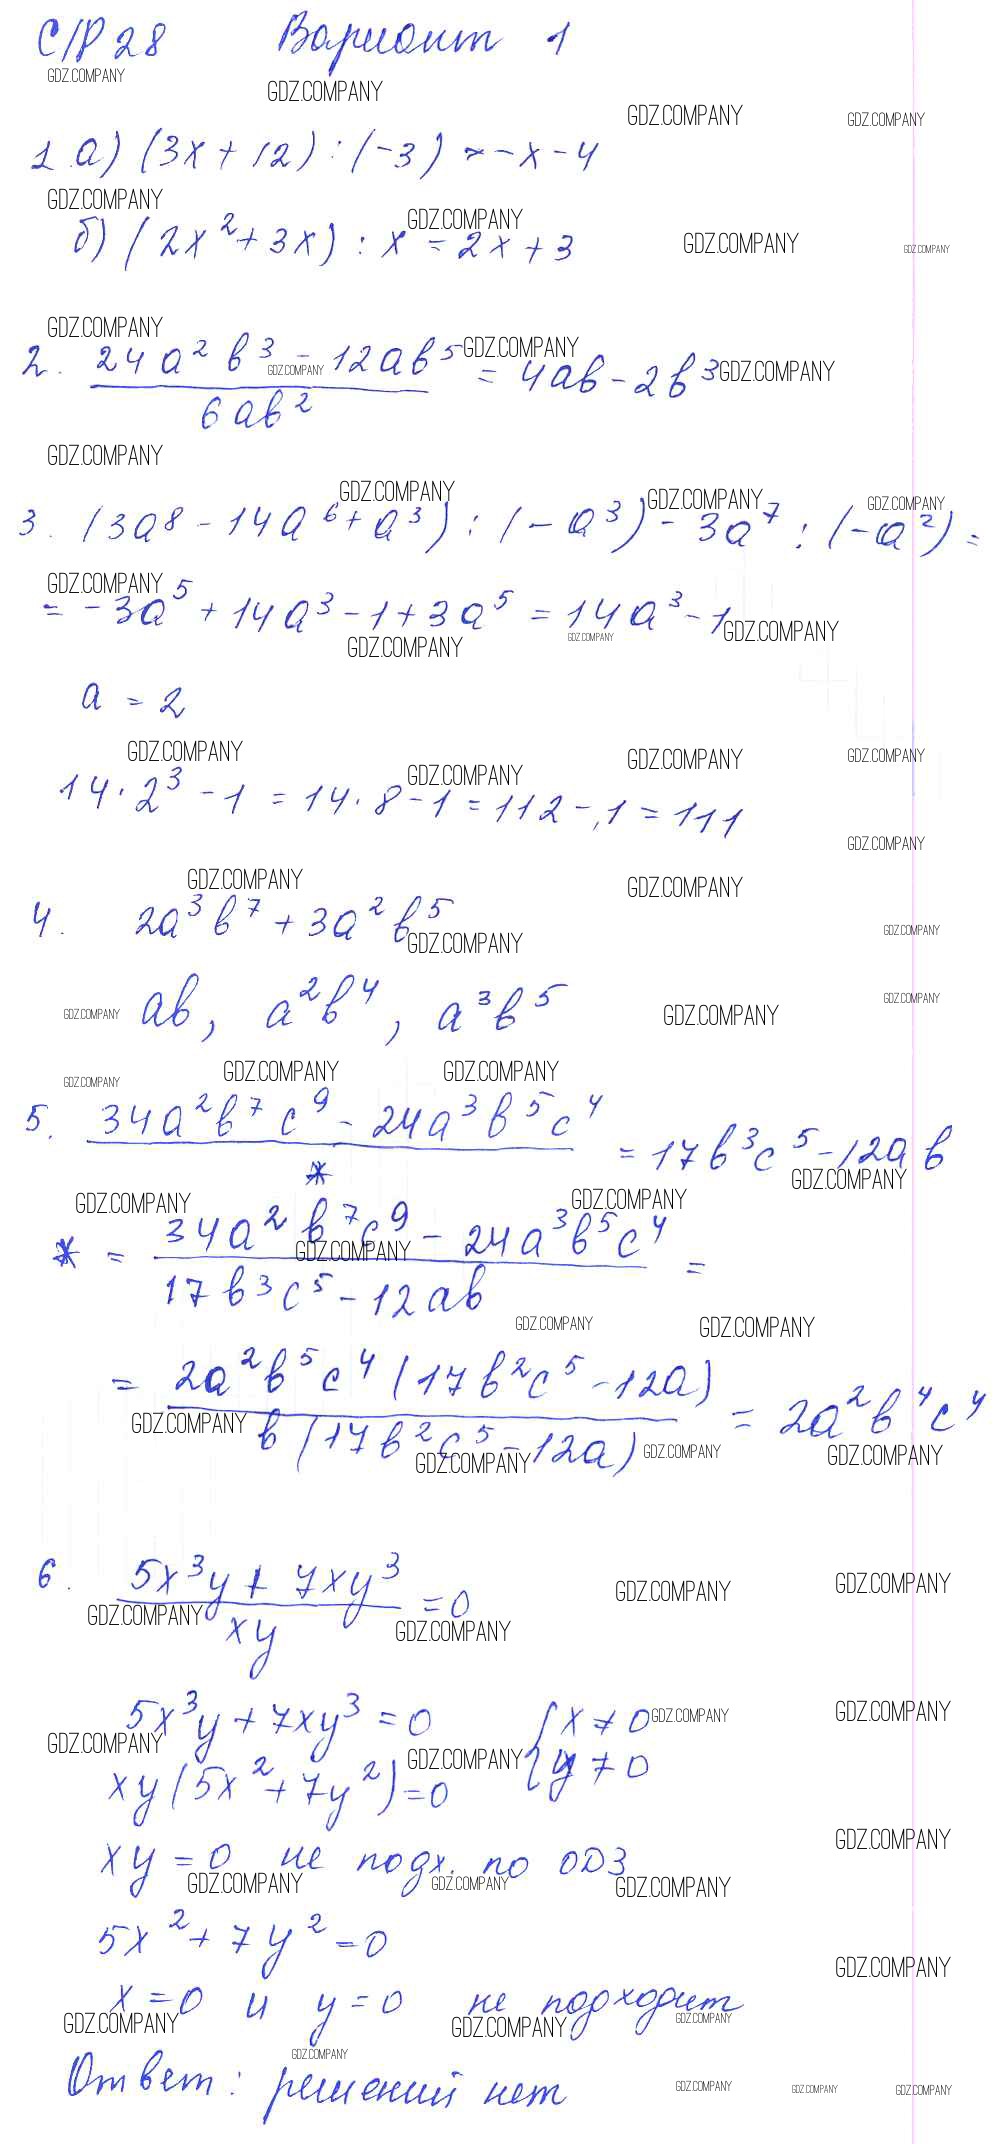 С/Р 28 Вариант 1
1. а) (3x + 12) : (-3) = -x - 4
б) (2x² + 3x) : x = 2x + 3
2. (24a²b³ - 12ab⁵)/(6ab²) = 4ab - 2b³
3. (3a⁸ - 14a⁶ + a³) : (-a³) - 3a⁷ : (-a²) =
= -3a⁵ + 14a³ - 1 + 3a⁵ = 14a³ - 1
a = 2
14 · 2³ - 1 = 14 · 8 - 1 = 112 - 1 = 111
4. 2a³b⁷ + 3a²b⁵
ab, a²b⁴, a³b⁵
5. (34a²b⁷c⁹ - 24a³b⁵c⁴)/* = 17b³c⁵ - 12ab
* = (34a²b⁷c⁹ - 24a³b⁵c⁴)/(17b³c⁵ - 12ab) =
= 2a²b⁵c⁴(17b²c⁵ - 12a)/b(17b²c⁵ - 12a) = 2a²b⁴c⁴
6. (5x³y + 7xy³)/(xy) = 0
5x³y + 7xy³ = 0 { x ≠ 0
xy(5x² + 7y²) = 0 { y ≠ 0
xy = 0 не подх. по ОДЗ
5x² + 7y² = 0
x = 0 и y = 0 не подходит
Ответ: решений нет
GDZ.COMPANY